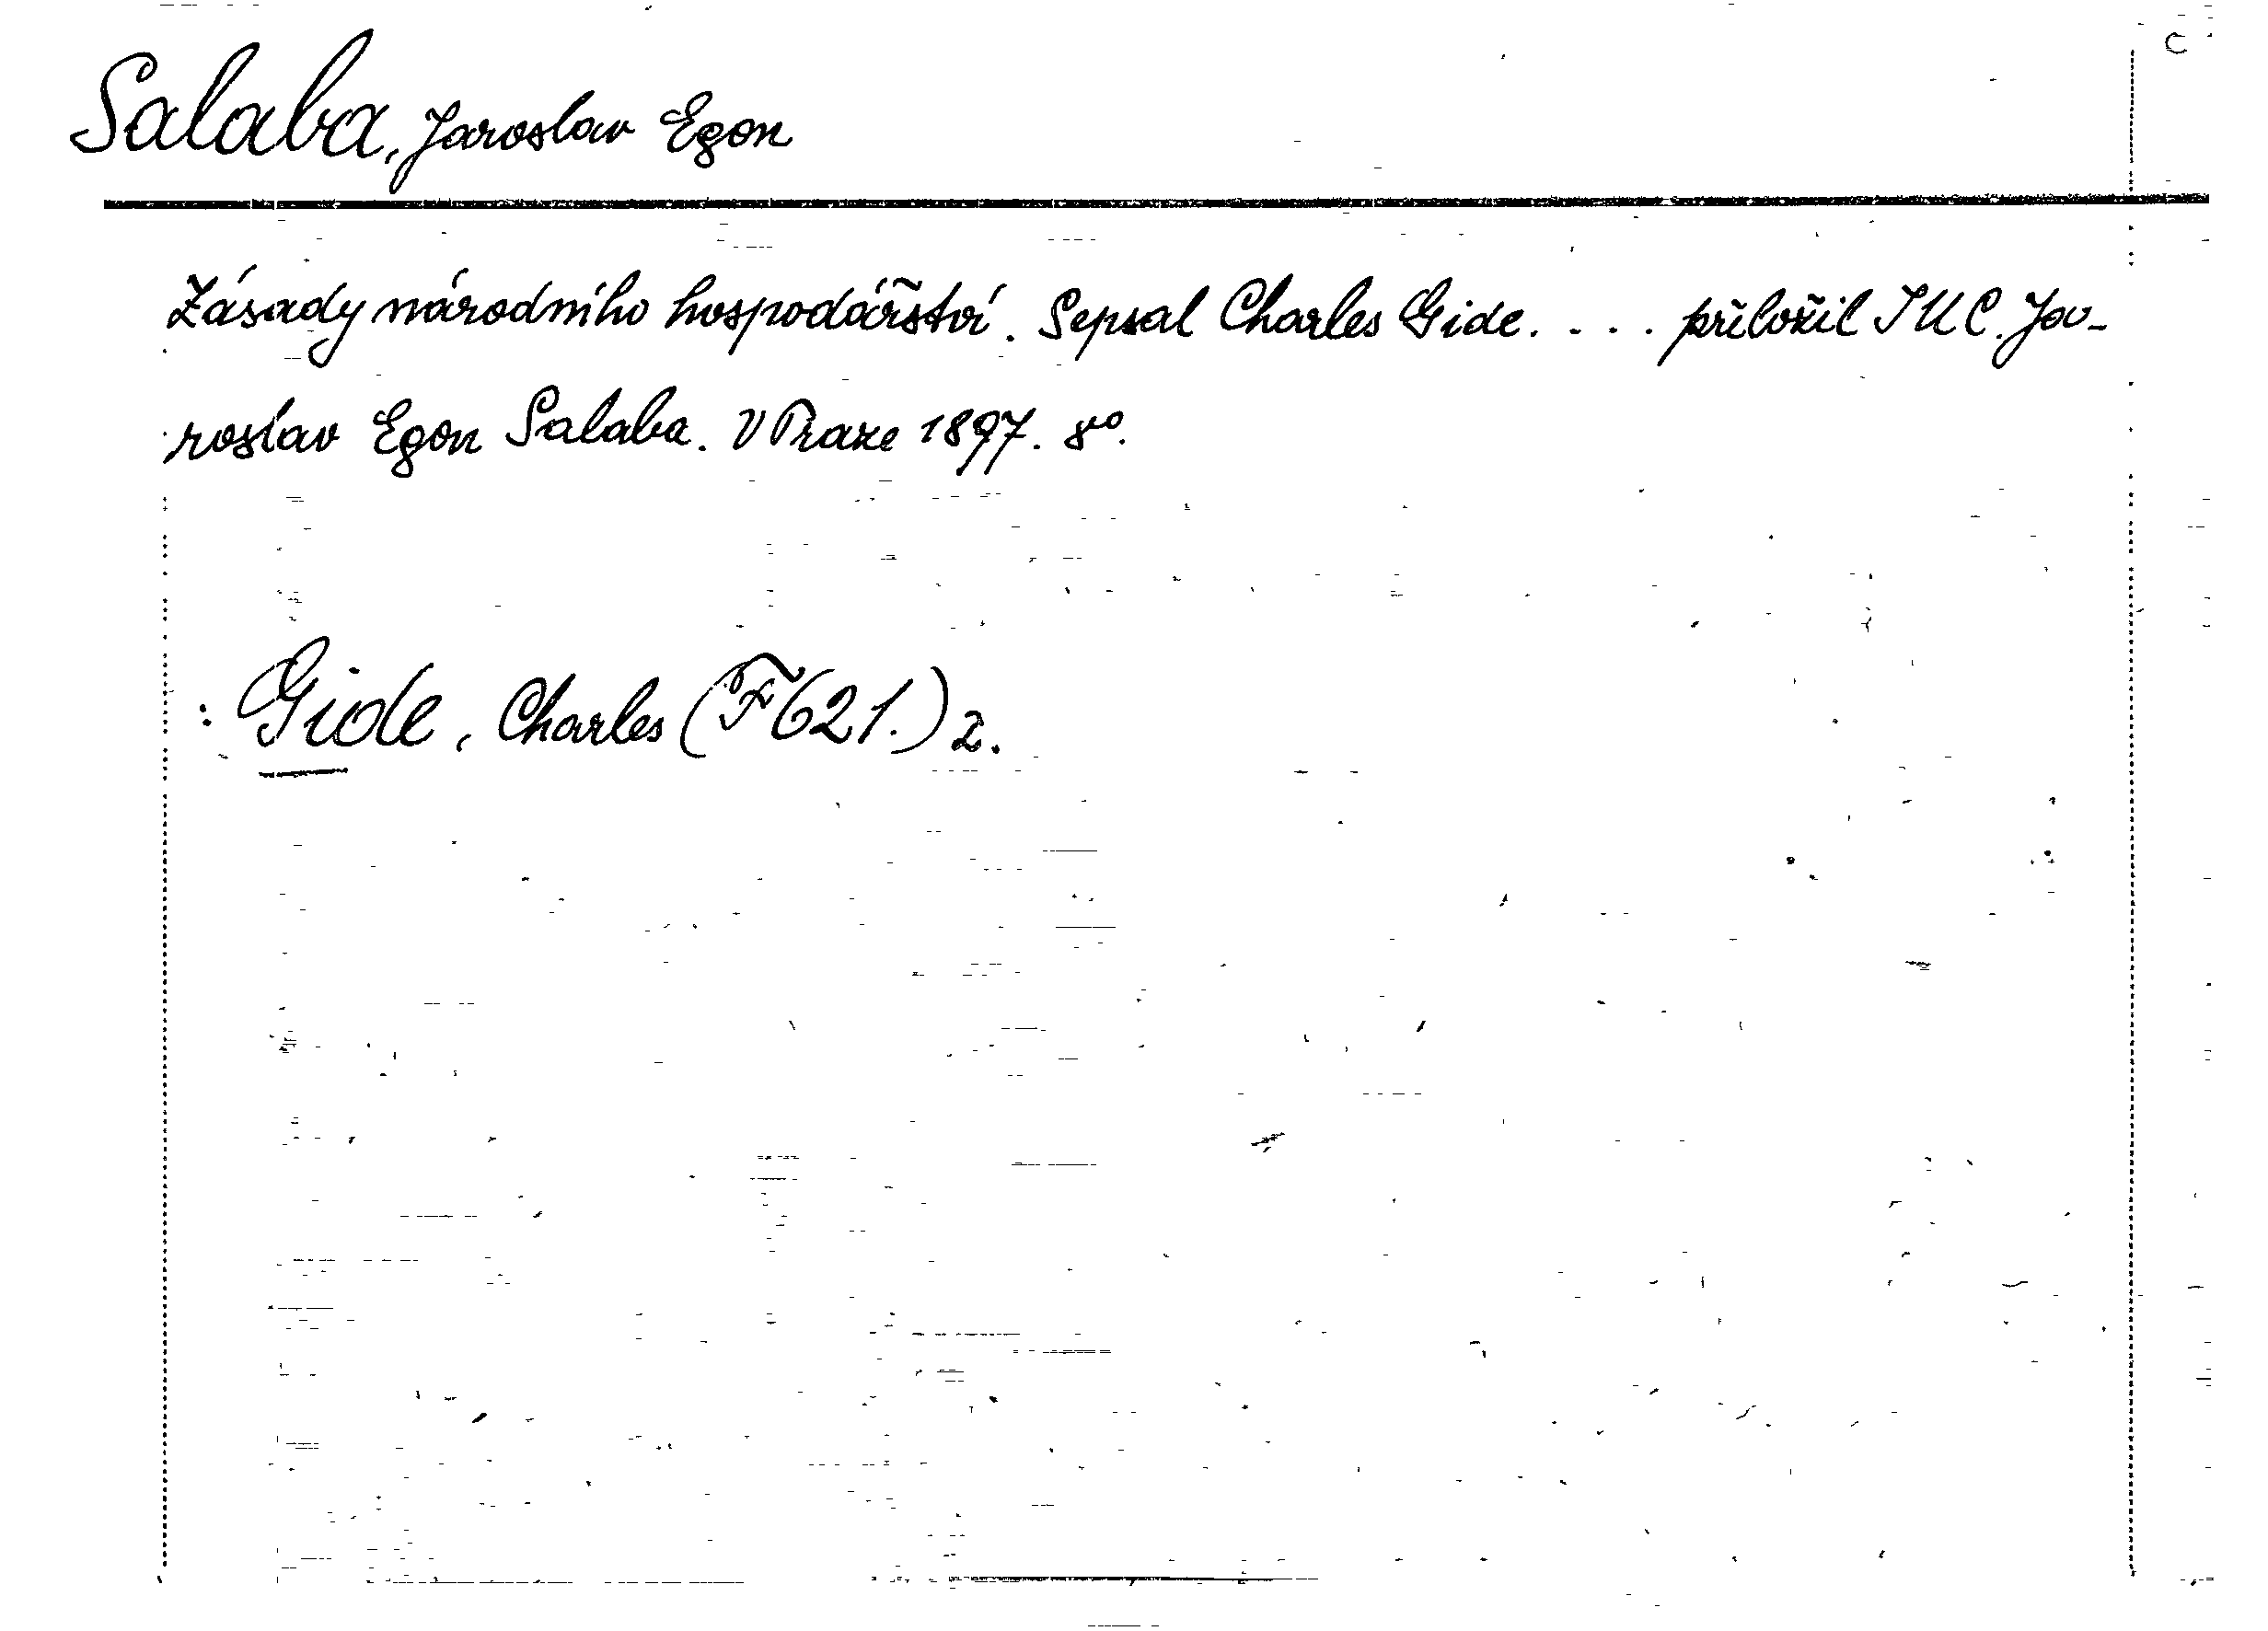 C
Salaba, Jaroslav Egon
Zásady národního hospodářství. Sepsal Charles Gide. . . . přiložil JUC. Ja-
roslav Egon Salaba. V Praze 1897. 8º.
: Gide, Charles (F 621.) 2.